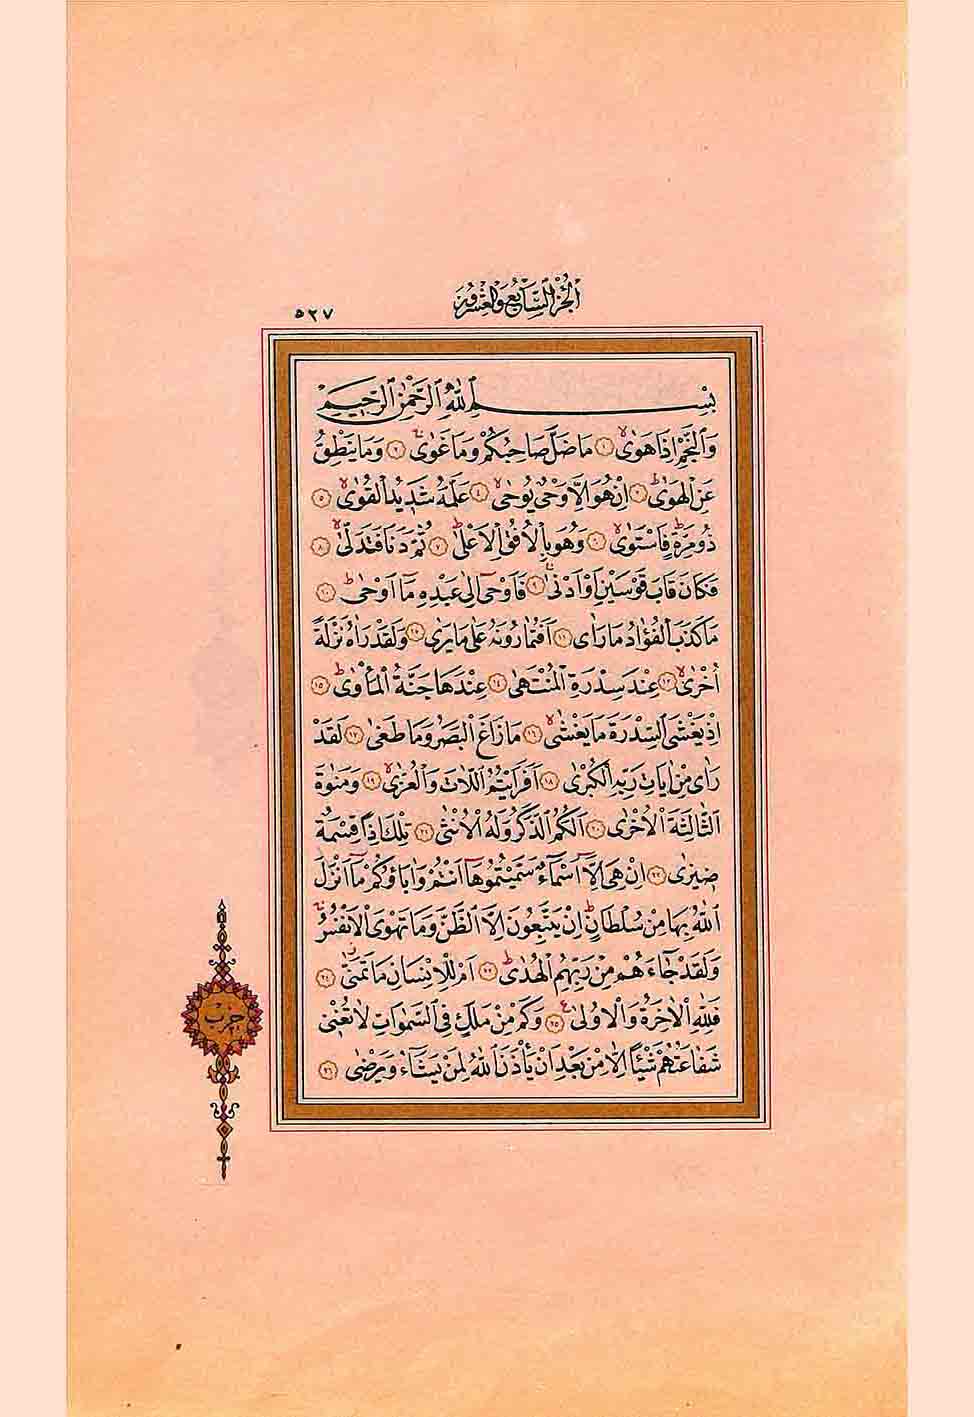 الجزء السابع والعشرون
٥٢٧
بِسْمِ اللّٰهِ الرَّحْمٰنِ الرَّحِيمِ
وَالنَّجْمِ اِذَا هَوٰىۙ ﴿١﴾ مَا ضَلَّ صَاحِبُكُمْ وَمَا غَوٰىۚ ﴿٢﴾ وَمَا يَنْطِقُ
عَنِ الْهَوٰىۜ ﴿٣﴾ اِنْ هُوَ اِلَّا وَحْيٌ يُوحٰىۙ ﴿٤﴾ عَلَّمَهُ شَدِيدُ الْقُوٰىۙ ﴿٥﴾
ذُو مِرَّةٍۜ فَاسْتَوٰىۙ ﴿٦﴾ وَهُوَ بِالْاُفُقِ الْاَعْلٰىۜ ﴿٧﴾ ثُمَّ دَنَا فَتَدَلّٰىۙ ﴿٨﴾
فَكَانَ قَابَ قَوْسَيْنِ اَوْ اَدْنٰىۚ ﴿٩﴾ فَاَوْحٰٓى اِلٰى عَبْدِهِ مَٓا اَوْحٰىۜ ﴿١٠﴾
مَا كَذَبَ الْفُؤٰادُ مَا رَاٰى ﴿١١﴾ اَفَتُمَارُونَهُ عَلٰى مَا يَرٰى ﴿١٢﴾ وَلَقَدْ رَاٰهُ نَزْلَةً
اُخْرٰىۙ ﴿١٣﴾ عِنْدَ سِدْرَةِ الْمُنْتَهٰى ﴿١٤﴾ عِنْدَهَا جَنَّةُ الْمَأْوٰىۜ ﴿١٥﴾
اِذْ يَغْشَى السِّدْرَةَ مَا يَغْشٰىۙ ﴿١٦﴾ مَا زَاغَ الْبَصَرُ وَمَا طَغٰى ﴿١٧﴾ لَقَدْ
رَاٰى مِنْ اٰيَاتِ رَبِّهِ الْكُبْرٰى ﴿١٨﴾ اَفَرَاَيْتُمُ اللَّاتَ وَالْعُزّٰىۙ ﴿١٩﴾ وَمَنٰوةَ
الثَّالِثَةَ الْاُخْرٰى ﴿٢٠﴾ اَلَكُمُ الذَّكَرُ وَلَهُ الْاُنْثٰى ﴿٢١﴾ تِلْكَ اِذاً قِسْمَةٌ
ضِيزٰى ﴿٢٢﴾ اِنْ هِيَ اِلَّٓا اَسْمَٓاءٌ سَمَّيْتُمُوهَٓا اَنْتُمْ وَاٰبَٓاؤُكُمْ مَٓا اَنْزَلَ
اللّٰهُ بِهَا مِنْ سُلْطَانٍۜ اِنْ يَتَّبِعُونَ اِلَّا الظَّنَّ وَمَا تَهْوَى الْاَنْفُسُۚ
وَلَقَدْ جَٓاءَهُمْ مِنْ رَبِّهِمُ الْهُدٰىۜ ﴿٢٣﴾ اَمْ لِلْاِنْسَانِ مَا تَمَنّٰىۘ ﴿٢٤﴾
فَلِلّٰهِ الْاٰخِرَةُ وَالْاُولٰى۟ ﴿٢٥﴾ وَكَمْ مِنْ مَلَكٍ فِي السَّمٰوَاتِ لَا تُغْنِي
شَفَاعَتُهُمْ شَيْـٔاً اِلَّا مِنْ بَعْدِ اَنْ يَأْذَنَ اللّٰهُ لِمَنْ يَشَٓاءُ وَيَرْضٰى ﴿٢٦﴾
حزب